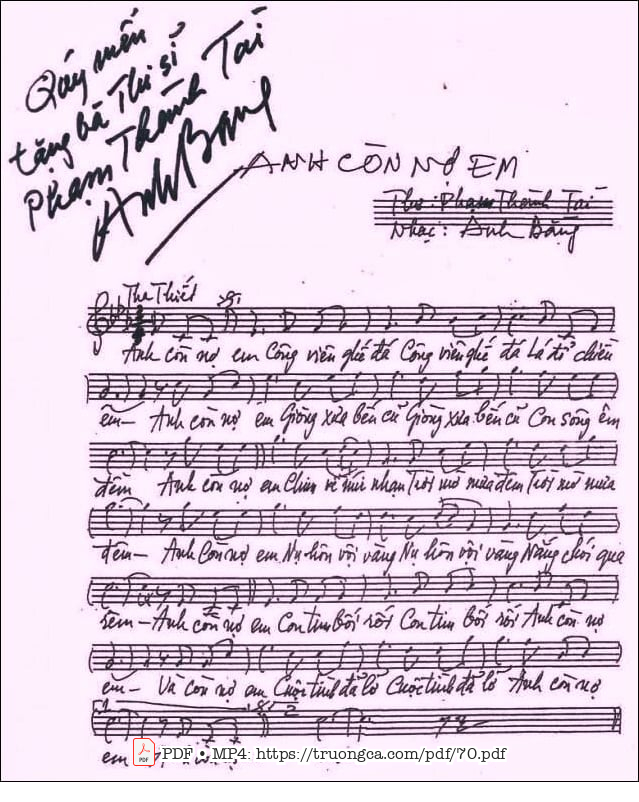 Quý mến
tặng bà Thi sĩ
Phạm Thành Tài
Anh Bang
ANH CÒN NỢ EM
Thơ: Phạm Thành Tài
Nhạc: Anh Bằng
Tha Thiết
Anh còn nợ em Công viên ghế đá Công viên ghế đá Lá đổ chiều
êm- Anh còn nợ em Giòng xưa bến cũ Giòng xưa bến cũ Con sông êm
đềm Anh còn nợ em Chim về núi nhạn Trời mờ mưa đêm Trời mờ mưa
đêm- Anh còn nợ em Nụ hôn vội vàng Nụ hôn vội vàng Nắng chói qua
rèm- Anh còn nợ em Con tim bối rối Con tim bối rối Anh còn nợ
em- Và còn nợ em Cuộc tình đã lỡ Cuộc tình đã lỡ Anh còn nợ
1 2
em
PDF • MP4: https://truongca.com/pdf/70.pdf